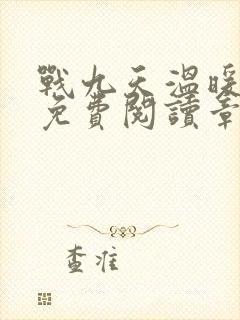 戰九天溫暖
免費閱讀章
查准